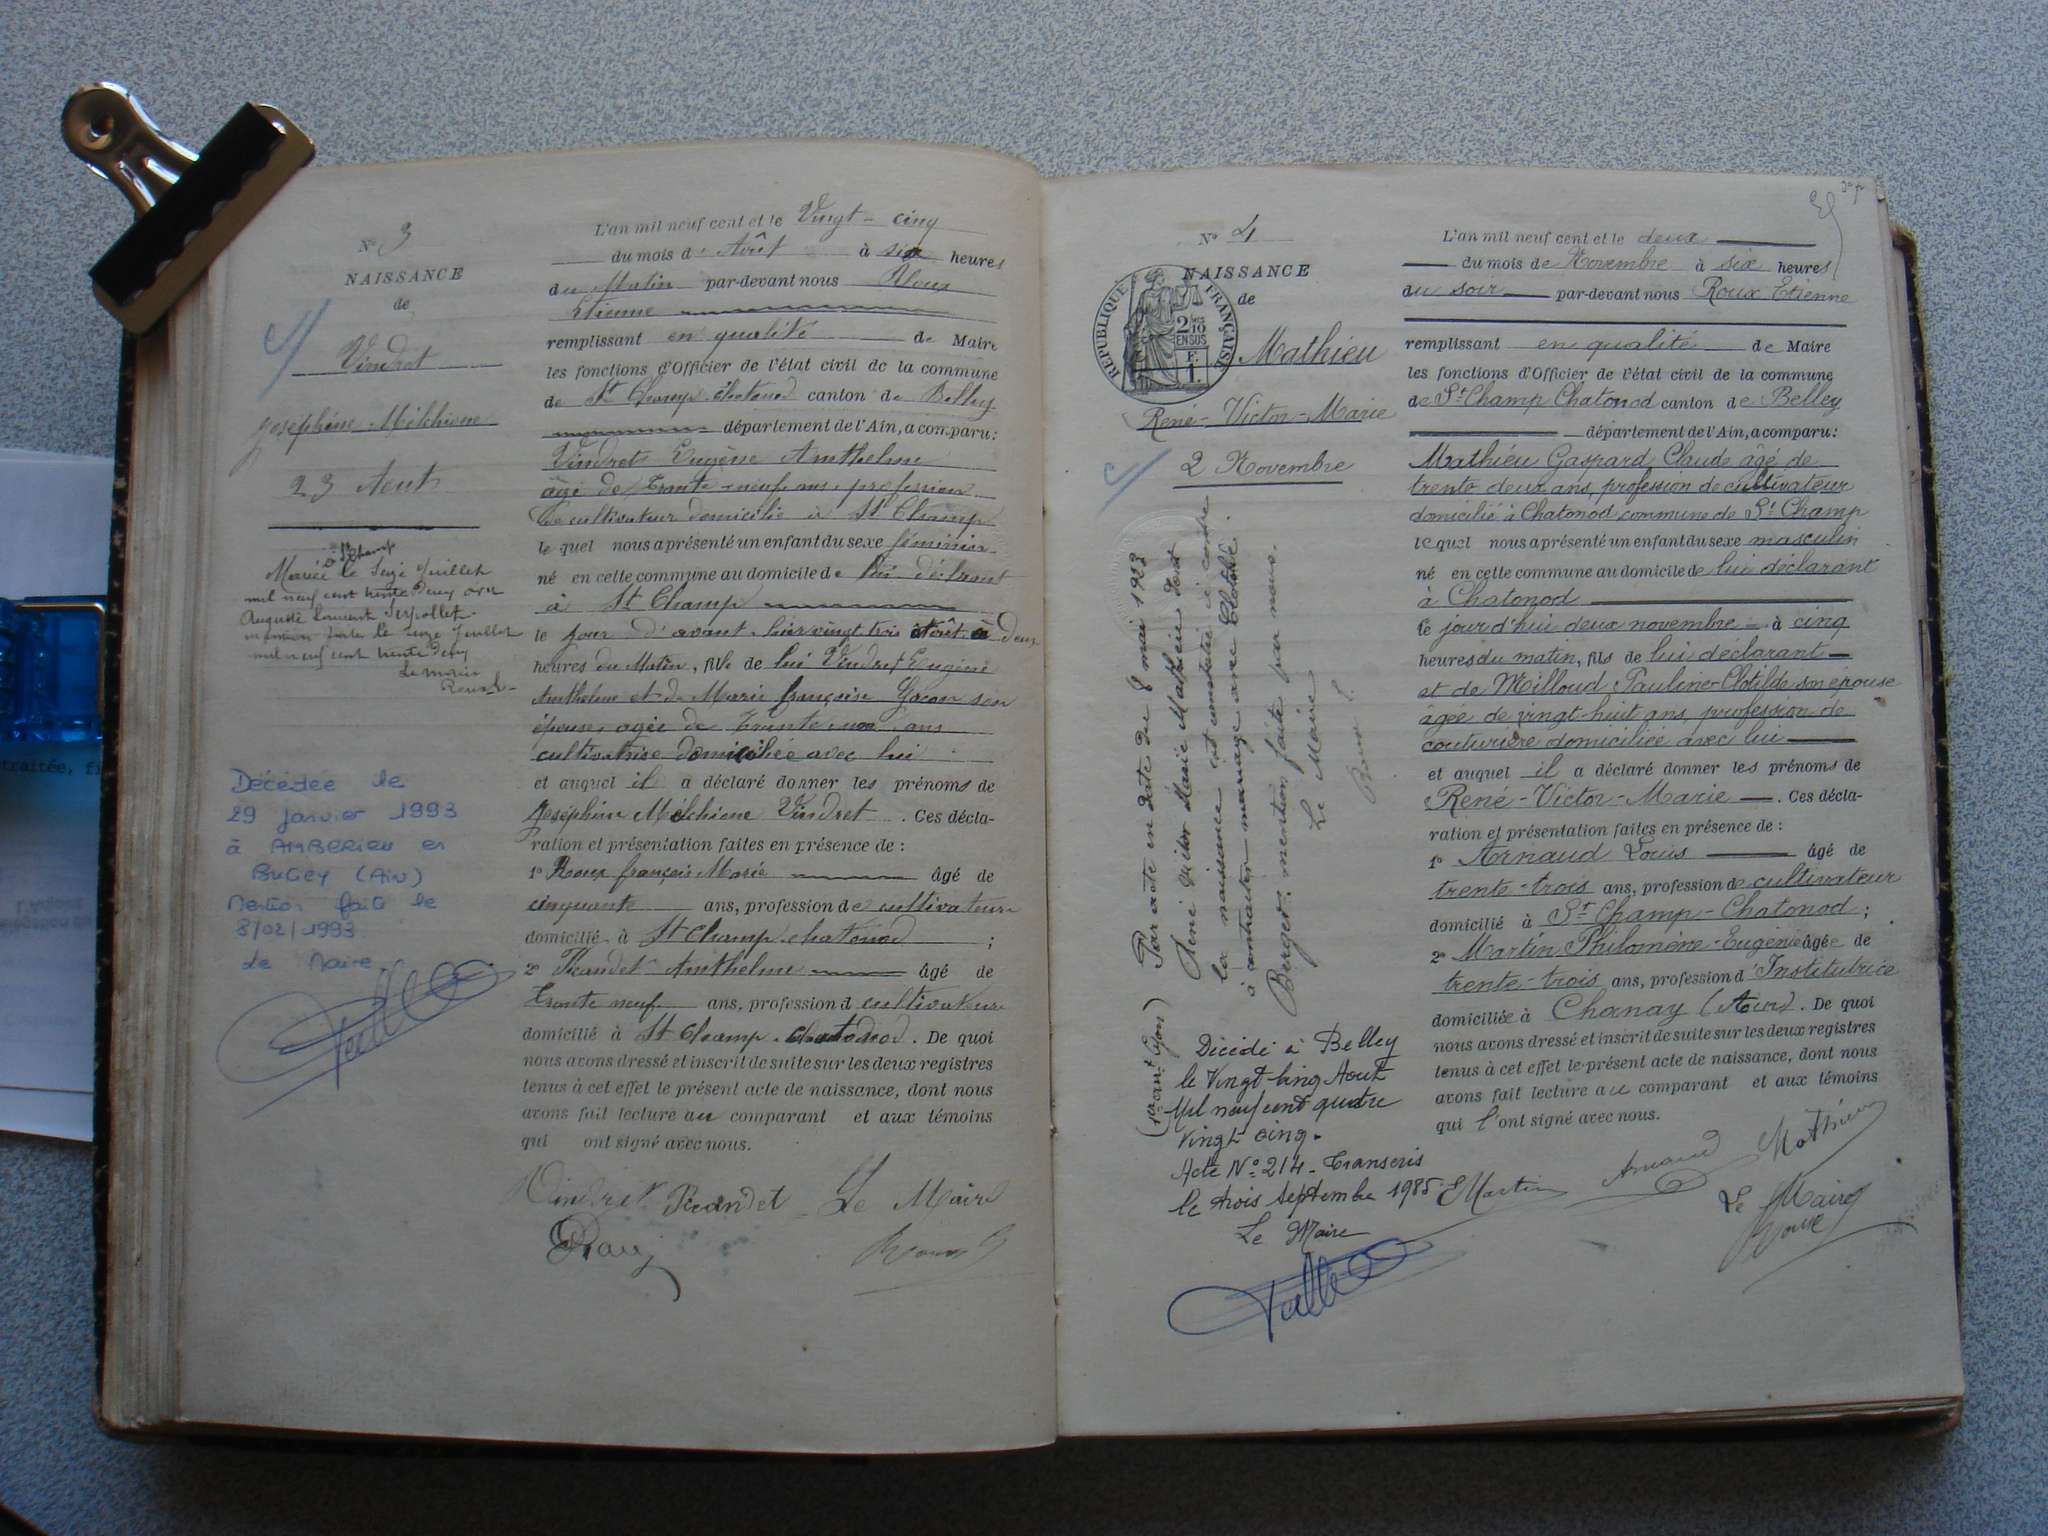 N° 3
NAISSANCE
de
Vindret
Joséphine Melchione
23 Aout
à St Champ
Mariée le Seize Juillet
mil neuf cent trente Deux avec
Auguste Laurent Serpollet
mention faite le Seize Juillet
mil neuf cent trente Deux
Le maire
Décédée le
29 Janvier 1993
à AMBERIEU en
BUGEY (AIN)
Mention faite le
8/02/1993
Le Maire
L'an mil neuf cent et le Vingt-cinq
du mois d'Août à six heures
du Matin par-devant nous Roux
Etienne
remplissant en qualité de Maire
les fonctions d'Officier de l'état civil de la commune
de St Champ Chatonod canton de Belley
département de l'Ain, a comparu:
Vindret Eugène Anthelme
âgé de Trente neuf ans, profession
de cultivateur domicilié à St Champ
lequel nous a présenté un enfant du sexe féminin
né en cette commune au domicile de lui déclarant
à St Champ
le jour d'avant hier vingt trois Août à deux
heures du Matin, fille de lui Vindret Eugène
Anthelme et de Marie françoise Gacon son
épouse, agée de Trente ans
cultivatrice domiciliée avec lui
et auquel il a déclaré donner les prénoms de
Joséphine Mélchione Vindret. Ces décla-
ration et présentation faites en présence de :
1° Roux françois Marie âgé de
cinquante ans, profession de cultivateur
domicilié à St Champ Chatonod ;
2° Picandet Anthelme âgé de
Trente neuf ans, profession d cultivateur
domicilié à St Champ Chatonod. De quoi
nous avons dressé et inscrit de suite sur les deux registres
tenus à cet effet le présent acte de naissance, dont nous
avons fait lecture au comparant et aux témoins
qui ont signé avec nous.
Vindret Picandet Le Maire
Roux
N° 4
NAISSANCE
de
REPUBLIQUE FRANÇAISE
2/10
EN SUS
F.
1.
Mathieu
René-Victor-Marie
2 Novembre
Par acte en date du 8 mai 1923
René Victor Marie Mathieu dont
la naissance est constatée ci contre
à contracter mariage avec Clotilde
Berger. mention faite par nous.
Le Maire
Roux E.
Décédé à Belley
le Vingt Cinq Aout
Mil neuf cent quatre
Vingt cinq.
Acte N° 214 - Transcris
le trois Septembre 1985
Le Maire
L'an mil neuf cent et le deux
du mois de Novembre à six heures
du soir par-devant nous Roux Etienne
remplissant en qualité de Maire
les fonctions d'Officier de l'état civil de la commune
de St Champ Chatonod canton de Belley
département de l'Ain, a comparu:
Mathieu Gaspard Claude agé de
trente deux ans, profession de cultivateur
domicilié à Chatonod commune de St Champ
lequel nous a présenté un enfant du sexe masculin
né en cette commune au domicile de lui déclarant
à Chatonod
le jour d'hui deux novembre à cinq
heures du matin, fils de lui déclarant
et de Milloud Pauline-Clotilde son épouse
âgée de vingt-huit ans, profession de
couturière domiciliée avec lui
et auquel il a déclaré donner les prénoms de
René-Victor-Marie. Ces décla-
ration et présentation faites en présence de :
1° Arnaud Louis âgé de
trente-trois ans, profession de cultivateur
domicilié à St Champ-Chatonod ;
2° Martin Philomène-Eugénie âgée de
trente-trois ans, profession d'Institutrice
domiciliée à Chanay (Ain). De quoi
nous avons dressé et inscrit de suite sur les deux registres
tenus à cet effet le présent acte de naissance, dont nous
avons fait lecture au comparant et aux témoins
qui l'ont signé avec nous.
EMartin Arnaud Mathieu
Le Maire
Roux